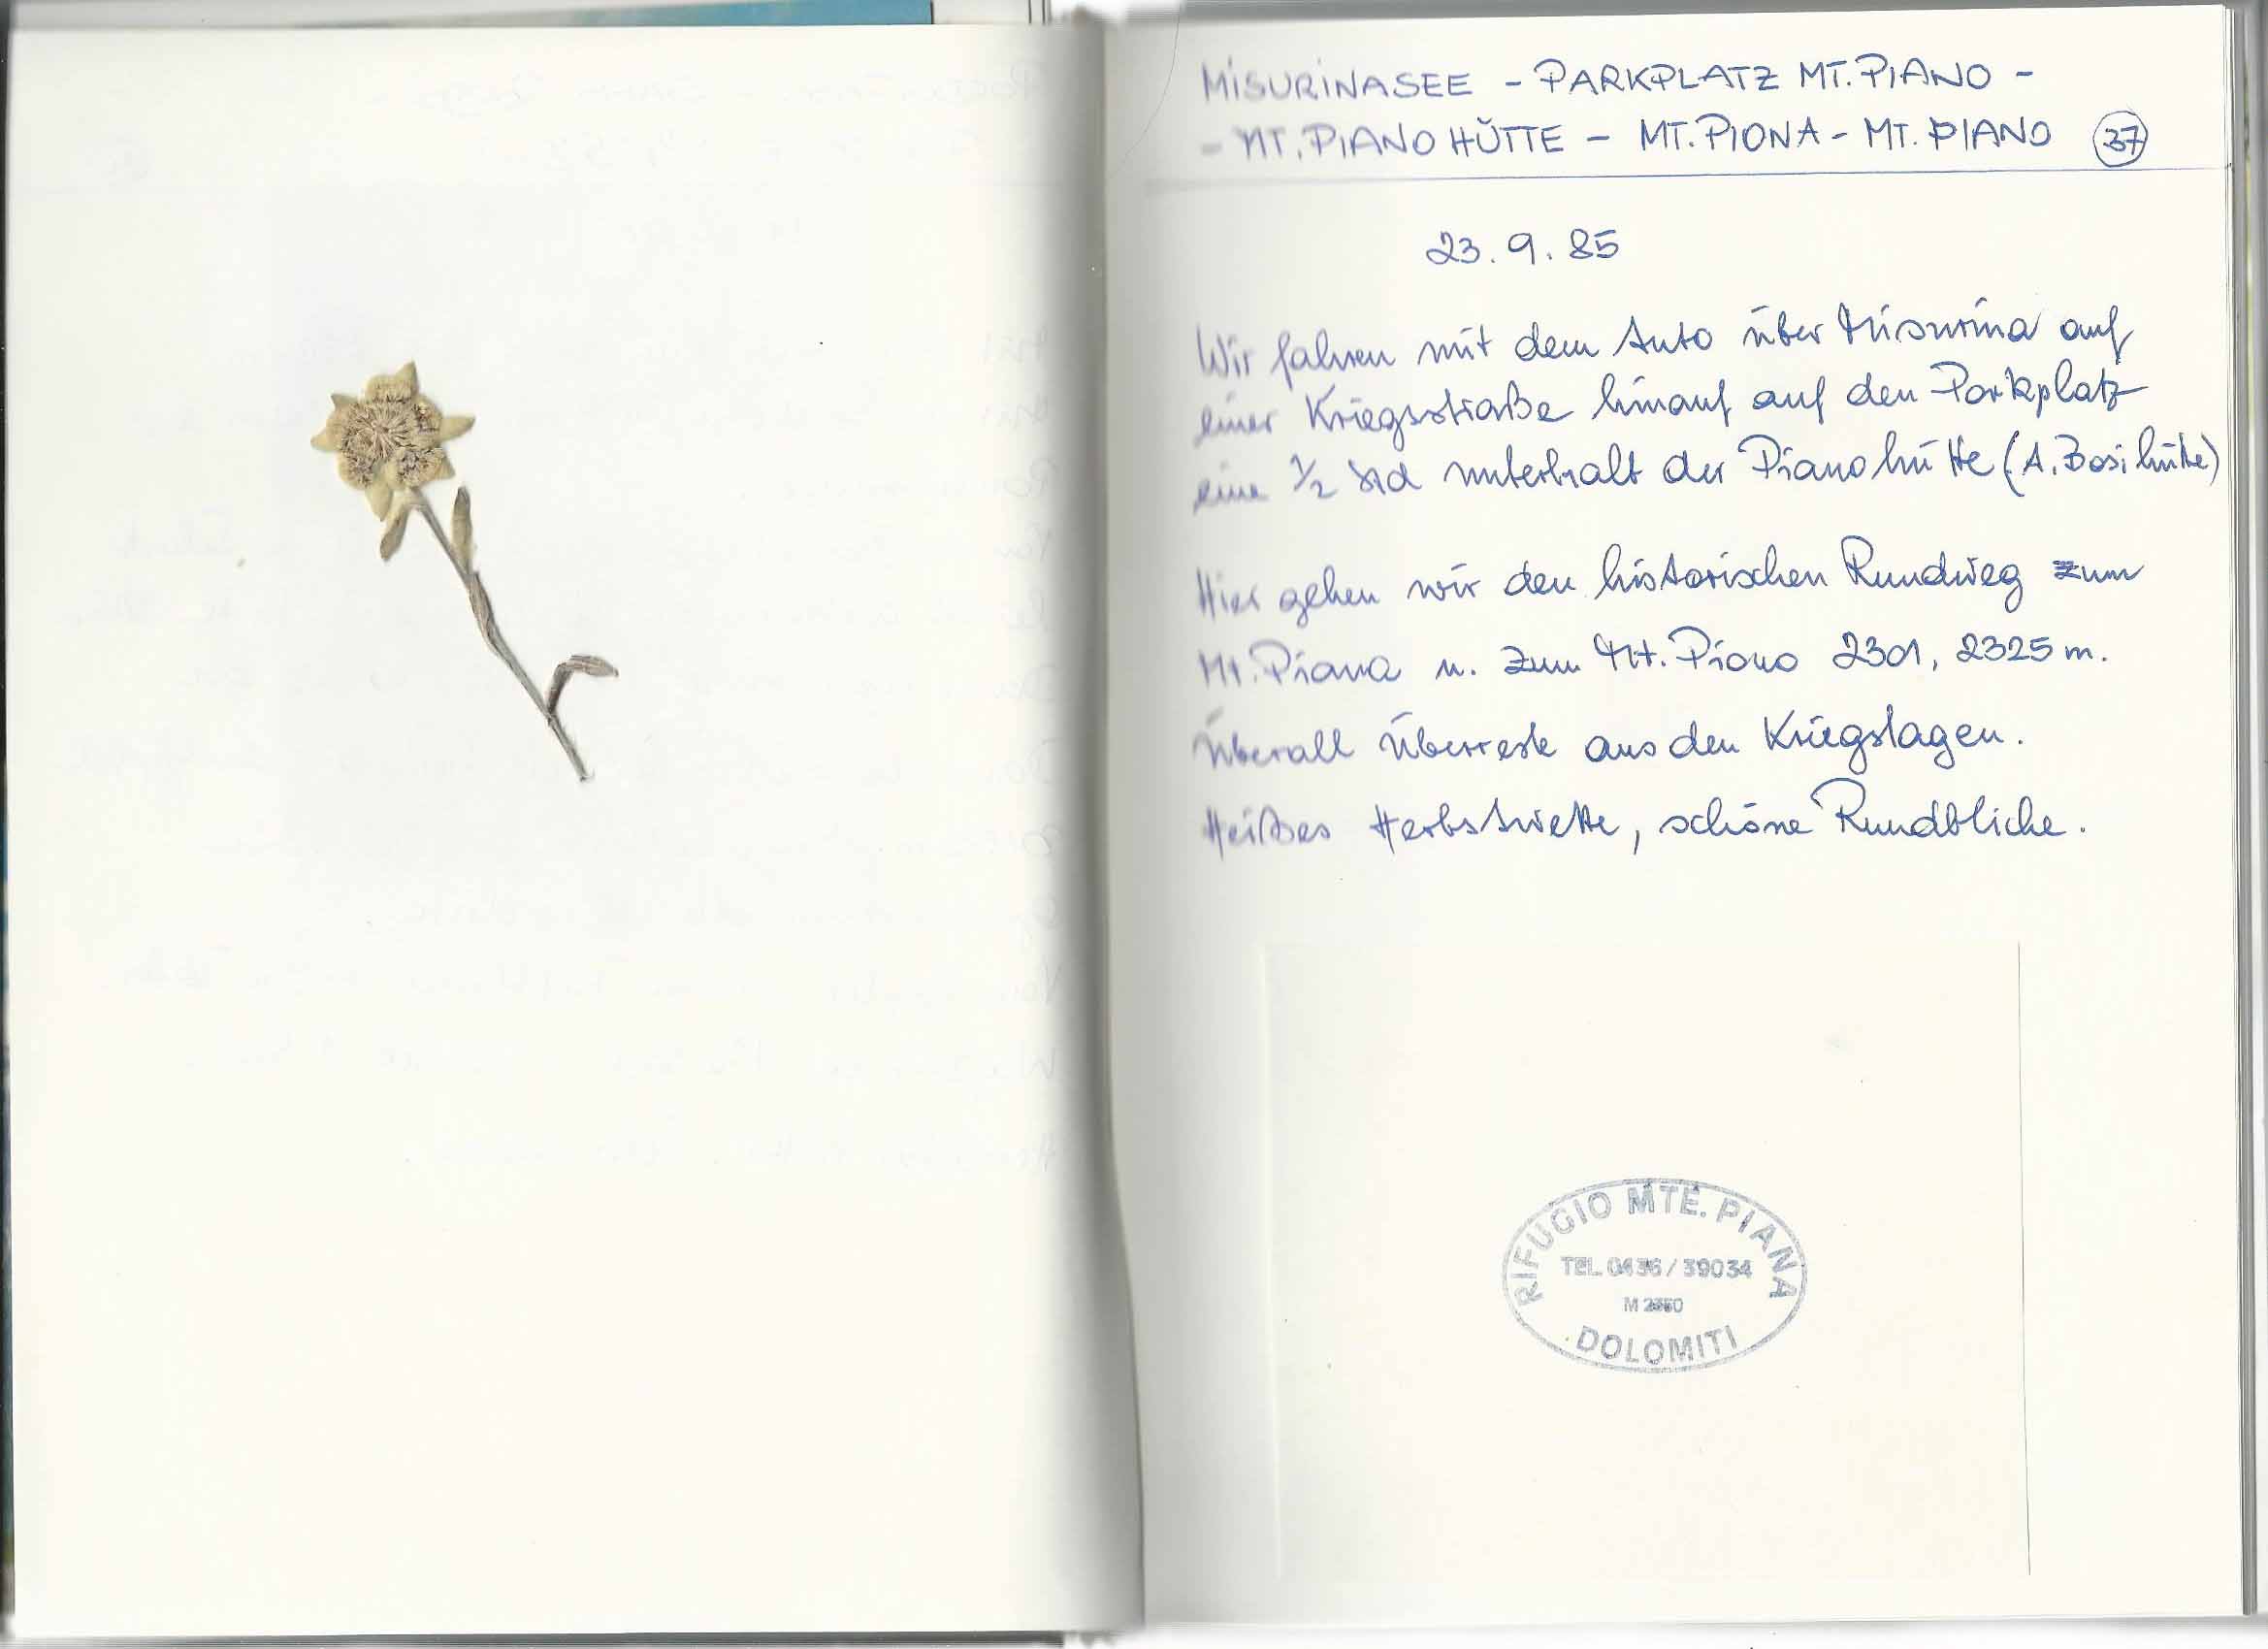 MISURINASEE - PARKPLATZ MT. PIANO -
- MT. PIANO HÜTTE - MT. PIONA - MT. PIANO 37
23. 9. 85
Wir fahren mit dem Auto über Misurina auf
einer Kriegsstraße hinauf auf den Parkplatz
eine 1/2 Std unterhalb der Pianohütte (A. Bosihütte)
Hier gehen wir den historischen Rundweg zum
Mt. Piana u. zum Mt. Piano 2301, 2325 m.
Überall Überreste aus den Kriegstagen.
Heißes Herbstwetter, schöne Rundblicke.
RIFUGIO MTE. PIANA
TEL. 0436/39034
M
DOLOMITI